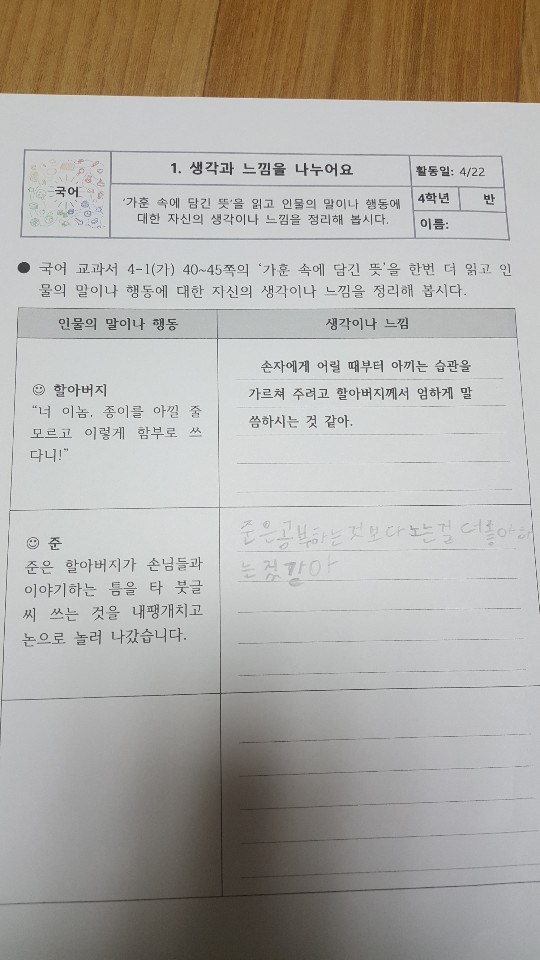 국어
1. 생각과 느낌을 나누어요
활동일: 4/22
'가훈 속에 담긴 뜻'을 읽고 인물의 말이나 행동에
대한 자신의 생각이나 느낌을 정리해 봅시다.
4학년 반
이름:
● 국어 교과서 4-1(가) 40~45쪽의 '가훈 속에 담긴 뜻'을 한번 더 읽고 인
물의 말이나 행동에 대한 자신의 생각이나 느낌을 정리해 봅시다.
인물의 말이나 행동
생각이나 느낌
☺ 할아버지
"너 이놈, 종이를 아낄 줄
모르고 이렇게 함부로 쓰
다니!"
손자에게 어릴 때부터 아끼는 습관을
가르쳐 주려고 할아버지께서 엄하게 말
씀하시는 것 같아.
☺ 준
준은 할아버지가 손님들과
이야기하는 틈을 타 붓글
씨 쓰는 것을 내팽개치고
논으로 놀러 나갔습니다.
준은공부하는것보다 노는걸 더좋아하
는것같아